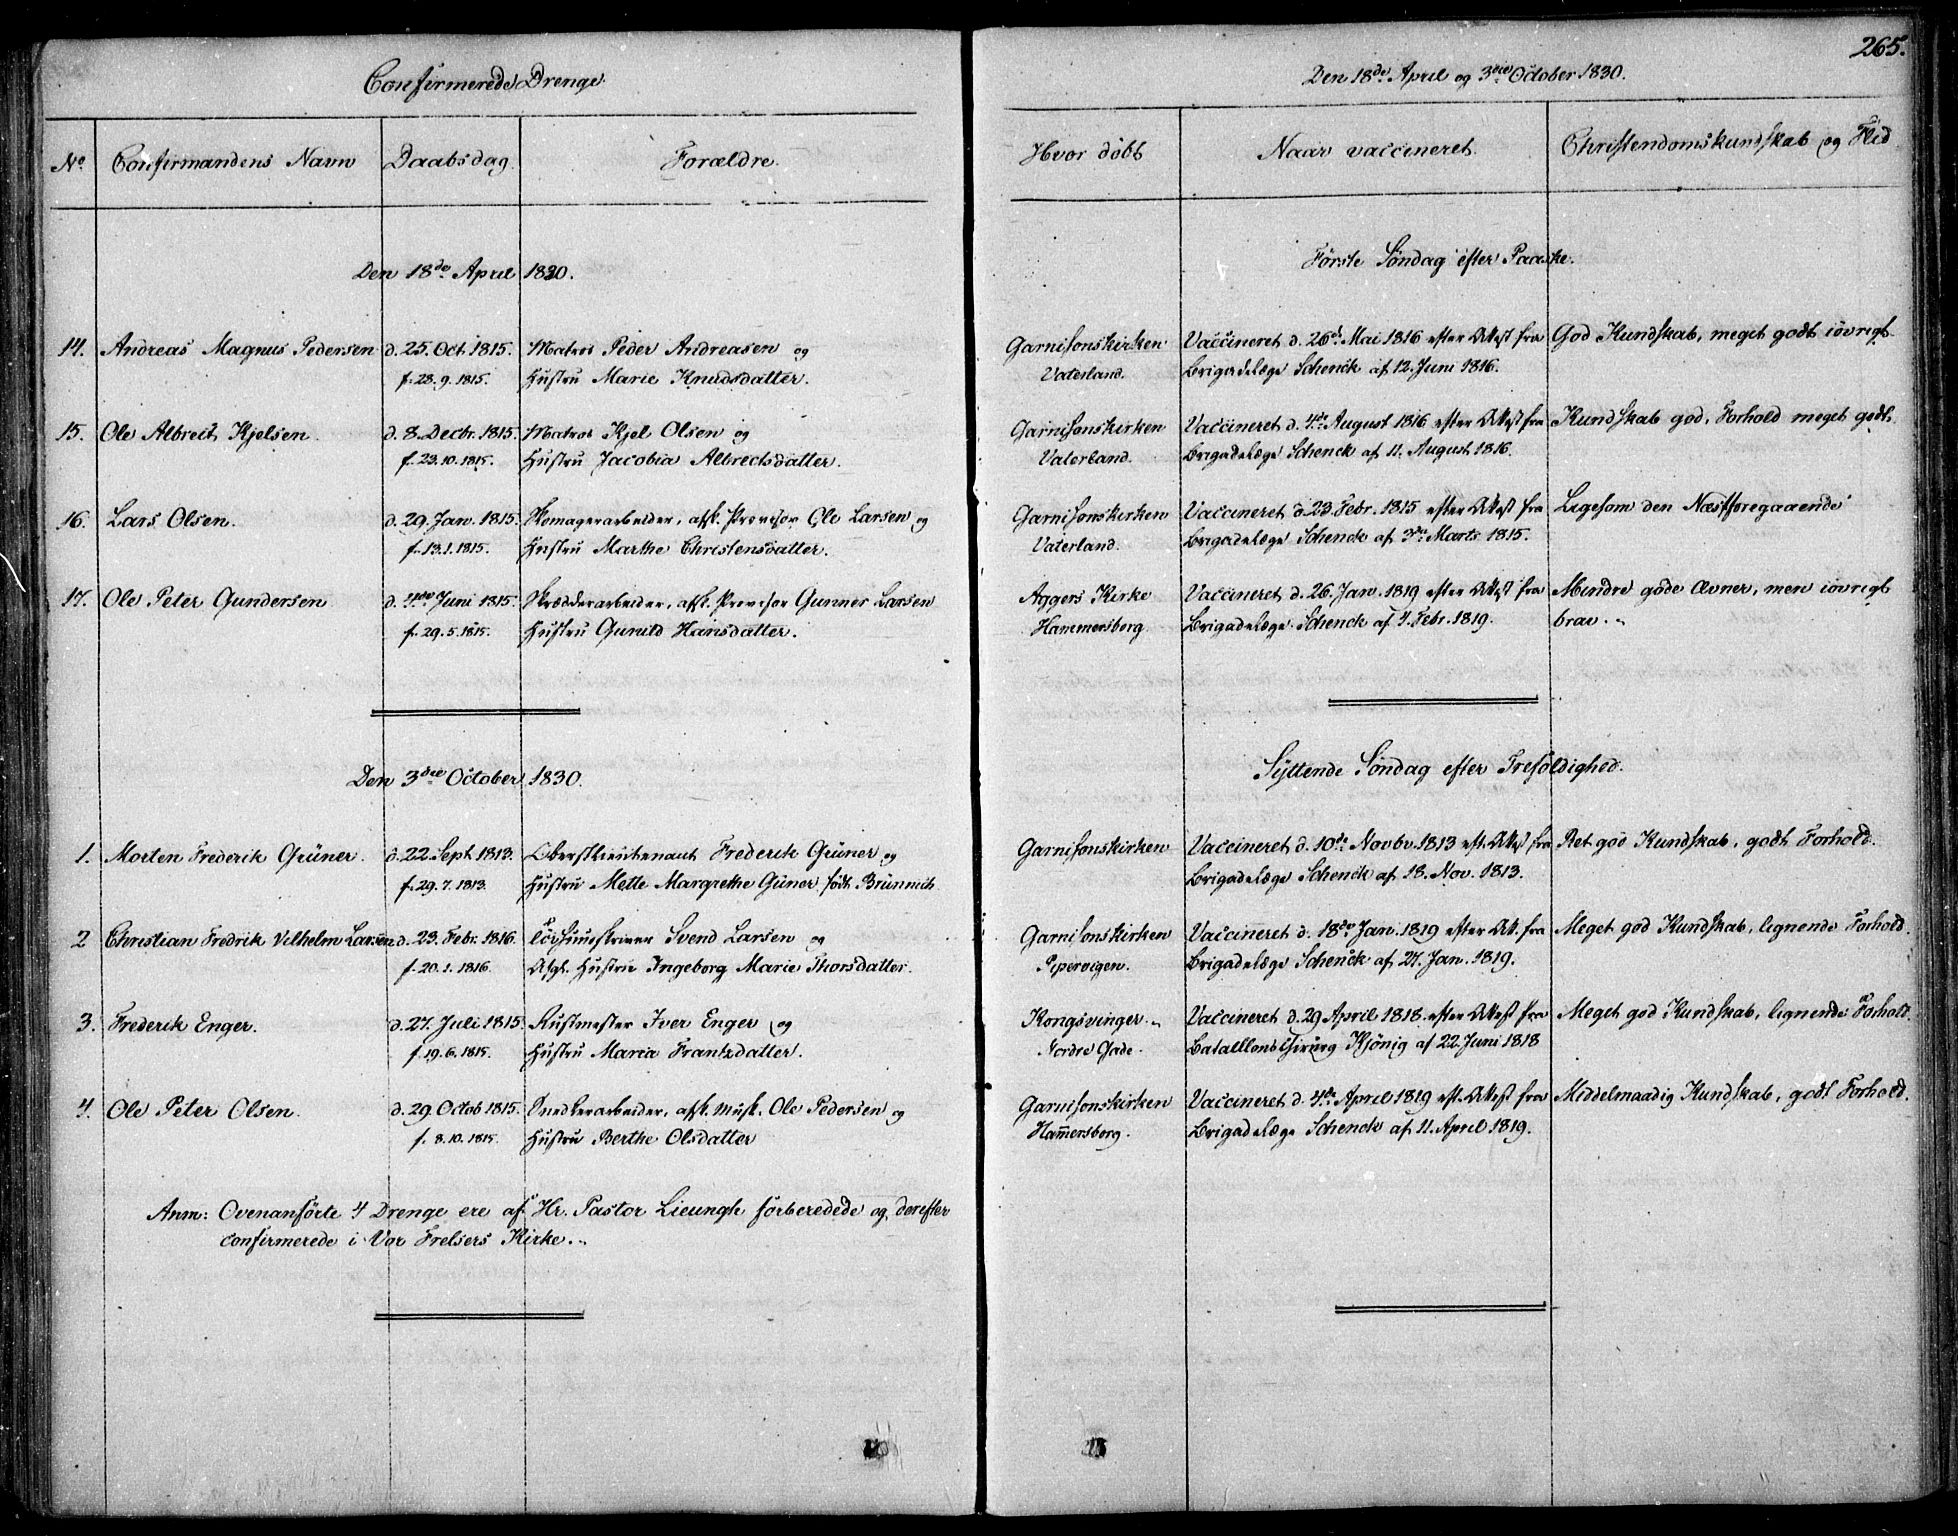 Confirmerede Drenge.
No. Confirmandens Navn Daabsdag. Forældre.
Den 18de April 1830.
14. Andreas Magnus Pedersen d. 25. Oct. 1815. Matros Peder Andreasen og
f. 28. 9. 1815. Hustru Marie Knudsdatter.
15. Ole Albreit Kjelsen. d. 8. Decbr. 1815. Matros Kjel Olsen og
f. 23. 10. 1815. Hustru Jacobia Albrectsdatter.
16. Lars Olsen. d. 29. Jan. 1815. Skomagerarbeider, afsk. Provisor Ole Larsen og
f. 13. 1. 1815. Hustru Marthe Christensdatter.
17. Ole Peter Gundersen d. 4de Juni 1815. Skrædderarbeider, afsk. Provisor Gunner Larsen
f. 29. 5. 1815. Hustru Gunild Hansdatter.
Den 3die October 1830.
1. Morten Frederik Grüner. d. 22. Sept. 1813. Oberstlieutenant Frederik Grüner og
f. 29. 7. 1813. Hustru Mette Margrethe Güner født Brünnich.
2 Christian Fredrik Vilhelm Larsen d. 23. Febr. 1816. Svend Larsen og
f. 20. 1. 1816. Afg. Hustru Ingeborg Marie Thorsdatter.
3. Frederik Enger. d. 27. Juli 1815. Rustmester Iver Enger og
f. 19. 6. 1815. Hustru Maria Frantzdatter.
4. Ole Peter Olsen. d. 29. Octob 1815. Snedkerarbeider, afsk. Musk. Ole Pedersen og
f. 8. 10. 1815. Hustru Berthe Olsdatter
Anm: Ovenanførte 4 Drenge ere af Hr. Pastor Lieungh forberedede og derefter
confirmerede i Vor Frelsers Kirke.
265.
Den 18de April og 3die October 1830.
Hvor døbt Naar vaccineret. Christendomskundskab og Flid
Første Søndag efter Paaske.
Garnisonskirken Vaccineret d. 26de Mai 1816 efter Attest fra God Kundskab, meget godt iøvrigt.
Vaterland. Brigadelæge Schenck af 12. Juni 1816.
Garnisonskirken Vaccineret d. 4de August 1816 efter Attest fra Kundskab god, Forhold meget godt.
Vaterland. Brigadelæge Schenck af 11. August 1816.
Garnisonskirken Vaccineret d. 23. Febr. 1815 efter Attest fra Ligesom den Næstforegaaende
Vaterland. Brigadelæge Schenck af 3die Marts 1815.
Aggers Kirke Vaccineret d. 26. Jan. 1819 efter Attest fra Mindre gode Evner, men iøvrigt
Hammersborg. Brigadelæge Schenck af 4. Febr. 1819. brav.
Syttende Søndag efter Trefoldighed.
Garnisonskirken Vaccineret d. 10de Novbr. 1813 eft. Attest fra Ret god Kundskab, godt Forhold.
Brigadelæge Schenck af 18. Nov. 1813.
Garnisonskirken Vaccineret d. 18de Jan. 1819 efter Att. fra Meget god Kundskab, lignende Forhold.
Pipervigen. Brigadelæge Schenck af 27. Jan. 1819.
Kongsvinger. Vaccineret d. 29 April 1818. efter Attest fra Meget god Kundskab, lignende Forhold.
Nordre Gade. Bataillons Chirurg Kjönig af 22. Juni 1818
Garnisonskirken Vaccineret d. 4de April 1819 eft. Attest fra Middelmaadig Kundskab, godt Forhold.
Hammersborg. Brigadelæge Schenck af 11. April 1819.